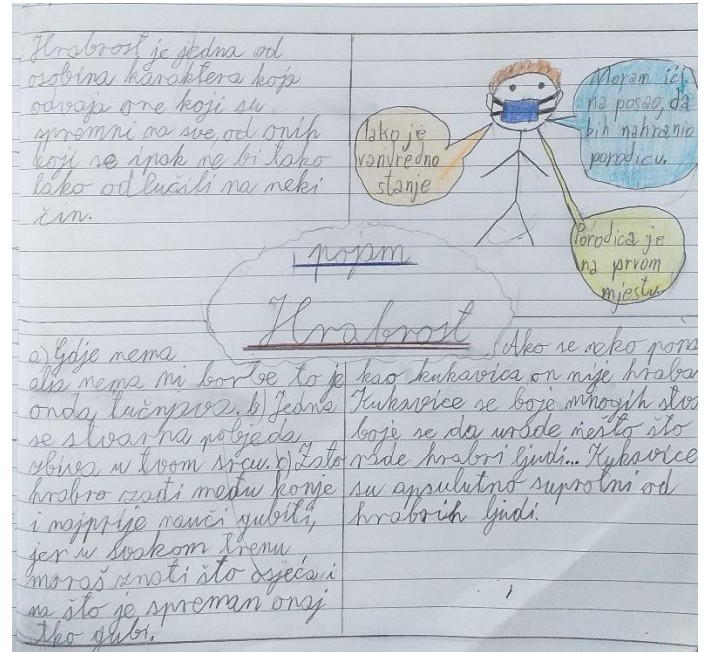 Hrabrost je jedna od
osobina karaktera koja
odvaja one koji su
spremni na sve, od onih
koji se ipak ne bi tako
lako odlučili na neki
čin.
Iako je
vanredno
stanje
Moram ići
na posao, da
bih nahranio
porodicu.
Porodica je
na prvom
mjestu.
pojam
Hrabrost
a) Gdje nema
alja nema ni borbe to je
onda tučnjava. b) Jedna
se stvarna pobjeda
zbiva u tvom srcu. c) Zato
hrabro zađi među konje
i najprije nauči gubiti,
jer u svakom trenu
moraš znati što osjeća i
na što je spreman onaj
tko gubi.
Ako se neko pona
kao kukavica on nije hraba
Kukavice se boje mnogih stva
boje se da urade nešto što
rade hrabri ljudi... Kukavice
su apsulutno suprotni od
hrabrih ljudi.